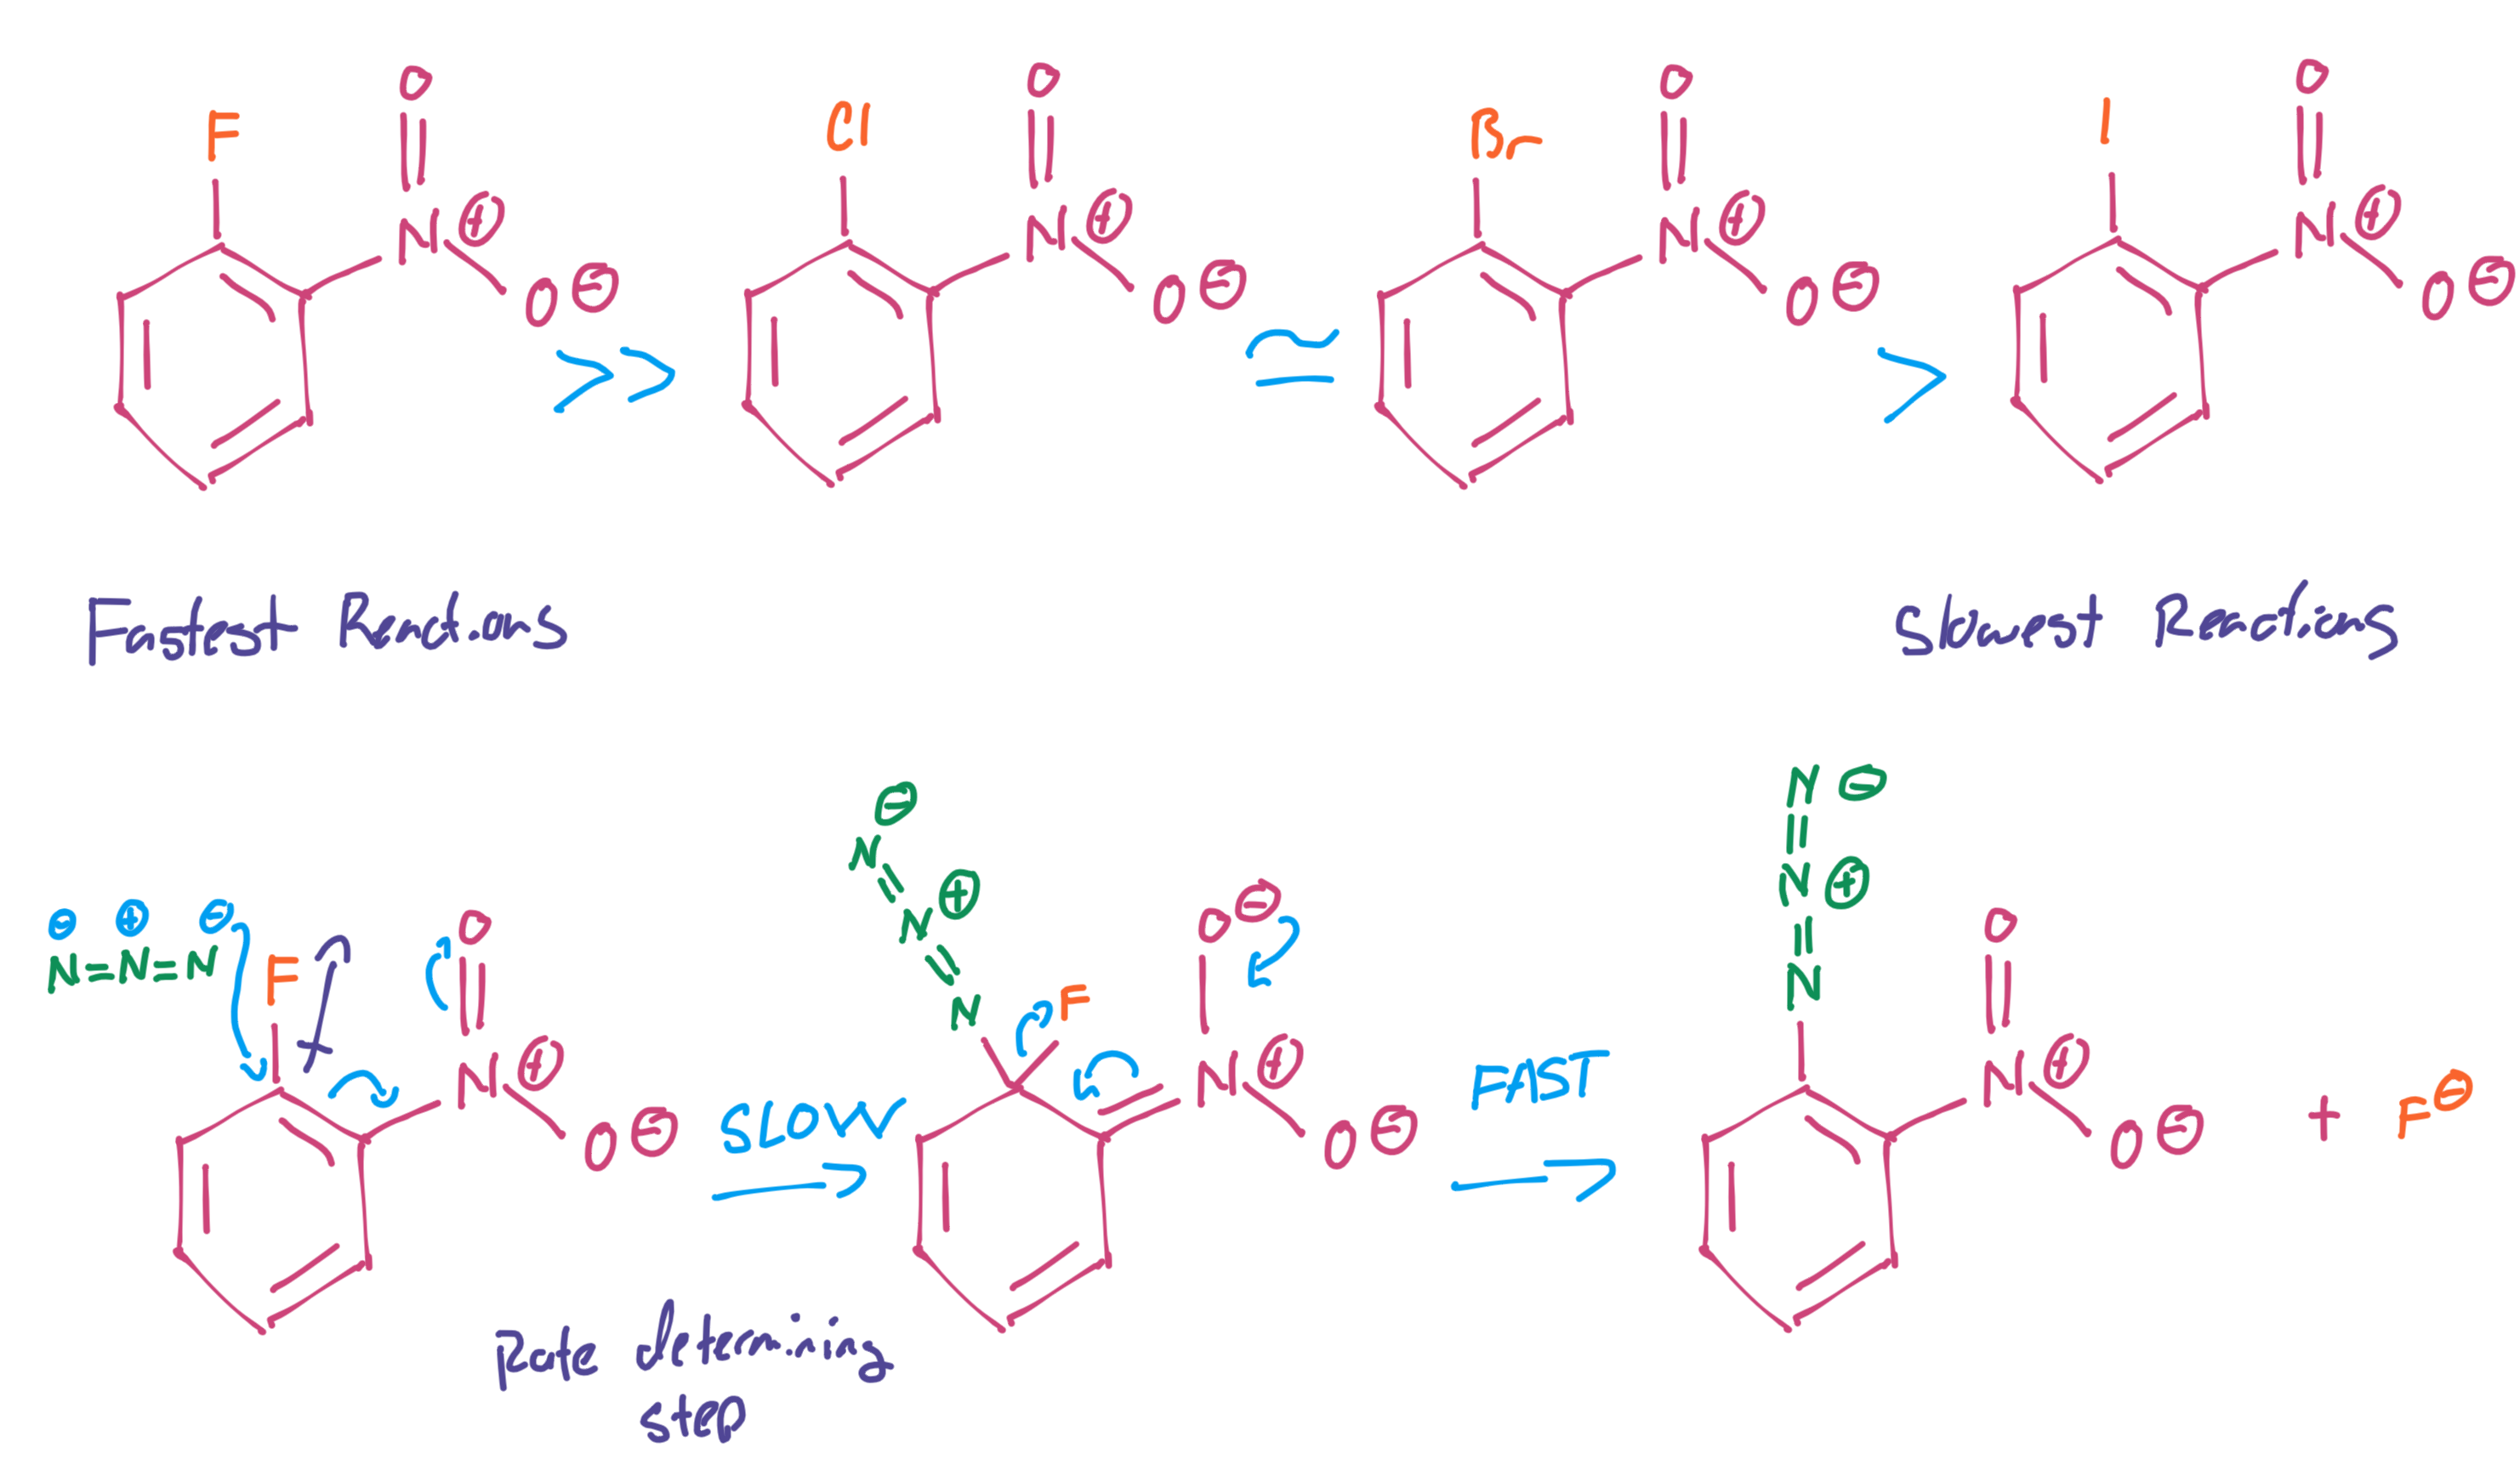 F O Cl O Br O I O
N⊕ N⊕ N⊕ N⊕
O⊖ >> O⊖ ≃ O⊖ > O⊖
Fastest Reactions Slowest Reactions
⊖ ⊕ ⊖
N=N=N F O
N⊕
O⊖
SLOW
Rate determining
step
N⊖
N⊕
N F O⊖
N⊕
O⊖
FAST
N⊖
N⊕
N O
N⊕
O⊖ + F⊖